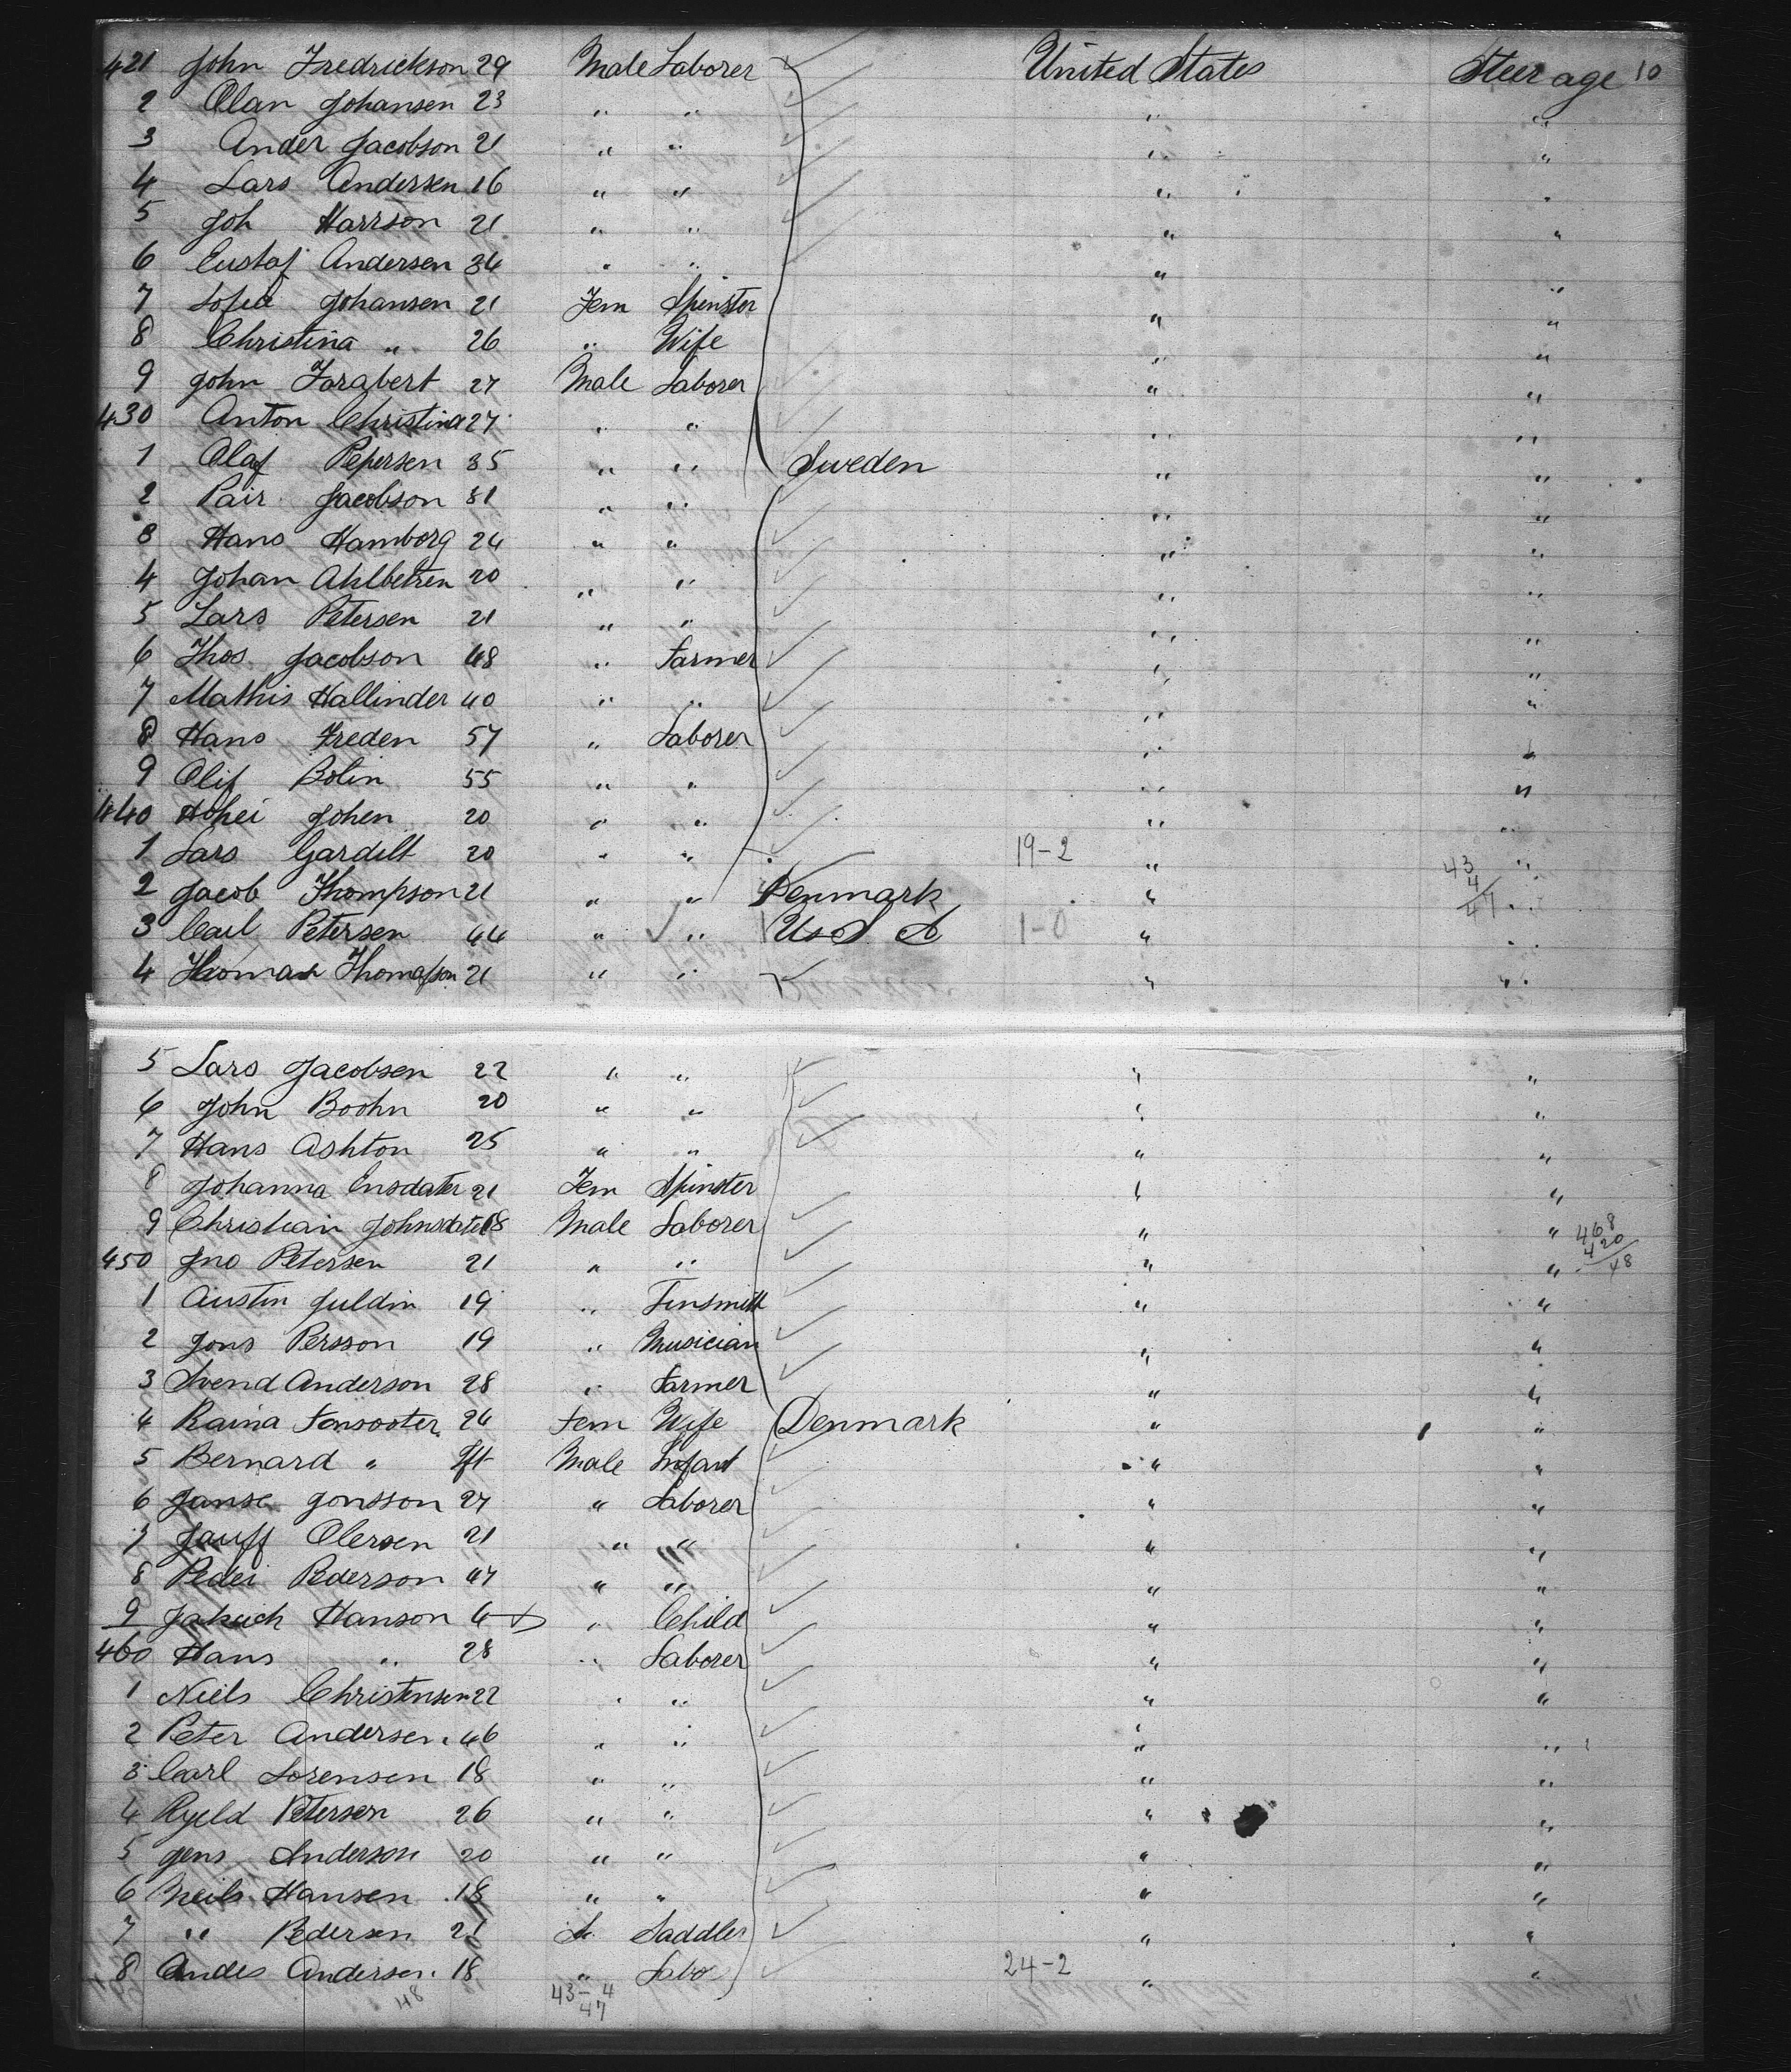 421 John Fredrickson 29 Male Laborer United States Steerage 10
2 Olan Johansen 23 " " " "
3 Ander Jacobson 21 " " " "
4 Lars Andersen 16 " " " "
5 Joh Harrson 21 " " " "
6 Gustaf Andersen 34 " " " "
7 Sofia Johansen 21 Fem Spinster " "
8 Christina " 26 " Wife " "
9 John Farabert 27 Male Laborer " "
430 Anton Christina 27 " " " "
1 Olaf Pepersen 35 " " Sweden " "
2 Pair Jacobson 31 " " " "
3 Hans Hamborg 24 " " " "
4 Johan Ahlbetren 20 " " " "
5 Lars Petersen 21 " " " "
6 Thos Jacobson 48 " Farmer " "
7 Mathis Hallinder 40 " " " "
8 Hans Freden 57 " Laborer " "
9 Olif Bolin 55 " " " "
440 Hohei Johen 20 " " " "
1 Lars Gardilt 20 " " 19-2 " "
43
4
47
2 Jacob Thompson 21 " " Denmark " "
3 Carl Petersen 44 " " U S A 1-0 " "
4 Thomas Thomasson 21 " " " "
5 Lars Jacobsen 22 " " " "
6 John Boohn 20 " " " "
7 Hans Ashton 25 " " " "
8 Johanna Ensdater 21 Fem Spinster " "
9 Christian Johnsdater 18 Male Laborer " "
468
420
48
450 Jno Petersen 21 " " " "
1 Austin Juldin 19 " Tinsmith " "
2 Jons Persson 19 " Musician " "
3 Svend Anderson 28 " Farmer " "
4 Raina Fonsooter 24 Fem Wife Denmark " "
5 Bernard " Ift Male Infant " "
6 Janse Jonsson 27 " Laborer " "
7 Jauff Olersen 21 " " " "
8 Pedei Pederson 47 " " " "
9 Hanson 4 " Child " "
460 Hans " 28 " Laborer " "
1 Niels Christensen 22 " " " "
2 Peter Andersen 46 " " " "
3 Carl Sorensen 18 " " " "
4 Kyeld Peterson 26 " " " "
5 Jens Anderson 20 " " " "
6 Neils Hansen 18 " " " "
7 " Pedersen 21 " Saddler " "
8 Andes Andersen 18 " Labo 24-2 " "
48 43-4
47